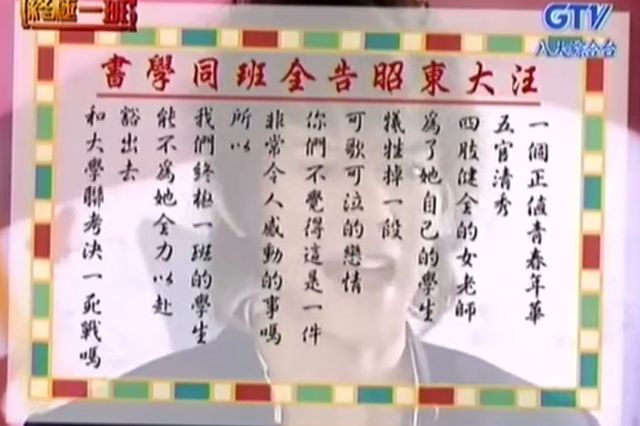 終極一班
GTV
八大綜合台
汪大東昭告全班同學書
一個正值青春年華
五官清秀
四肢健全的女老師
為了她自己的學生
犧牲掉一段
可歌可泣的戀情
你們不覺得這是一件
非常令人感動的事嗎
所以
我們終極一班的學生
能不為她全力以赴
豁出去
和大學聯考決一死戰嗎